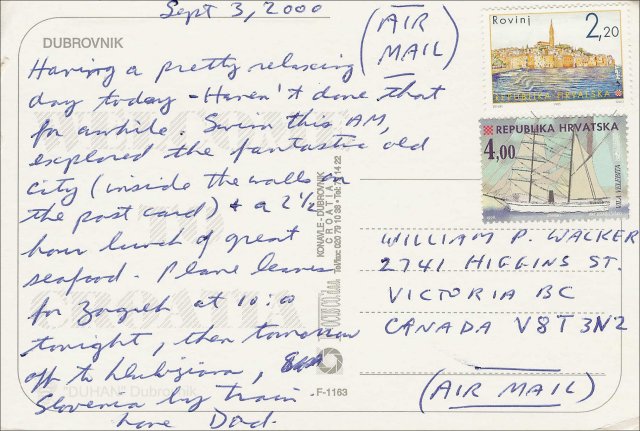 Sept 3, 2000
(AIR
MAIL)
DUBROVNIK
Having a pretty relaxing
day today - Haven't done that
for awhile. Swim this AM,
explored the fantastic old
city (inside the walls on
the post card) & a 2 1/2
hour lunch of great
seafood. Plane leaves
for Zagreb at 10:00
tonight, then tomorrow
off to Llubijana,
Slovenia by train
Love Dad.
Rovinj
2,20
REPUBLIKA HRVATSKA
REPUBLIKA HRVATSKA
4,00
WILLIAM P. WALKER
2741 HIGGINS ST.
VICTORIA BC
CANADA V8T 3N2
(AIR MAIL)
KONAVLE - DUBROVNIK
CROATIA
F-1163
"DUHAN" Dubrovnik
CROATIA